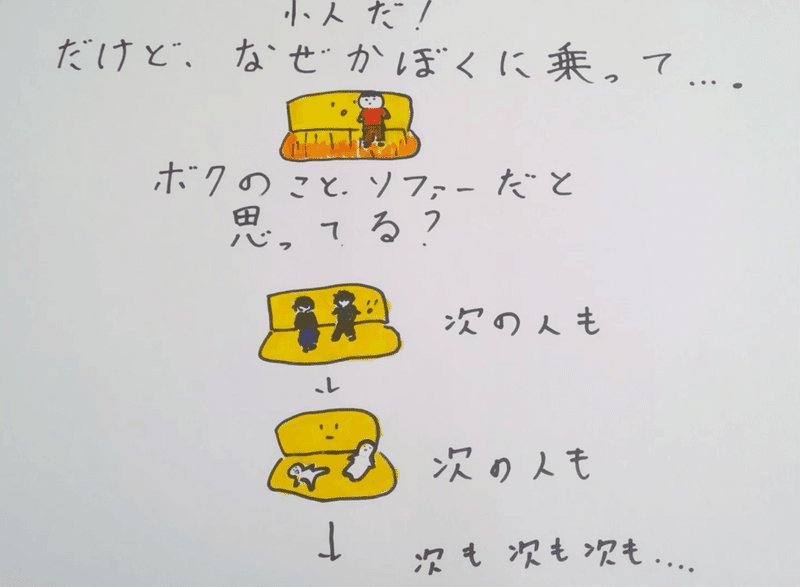 小人だ!
だけど、なぜかぼくに乗って…。
ボクのこと、ソファーだと
思ってる?
次の人も
次の人も
次も次も次も....